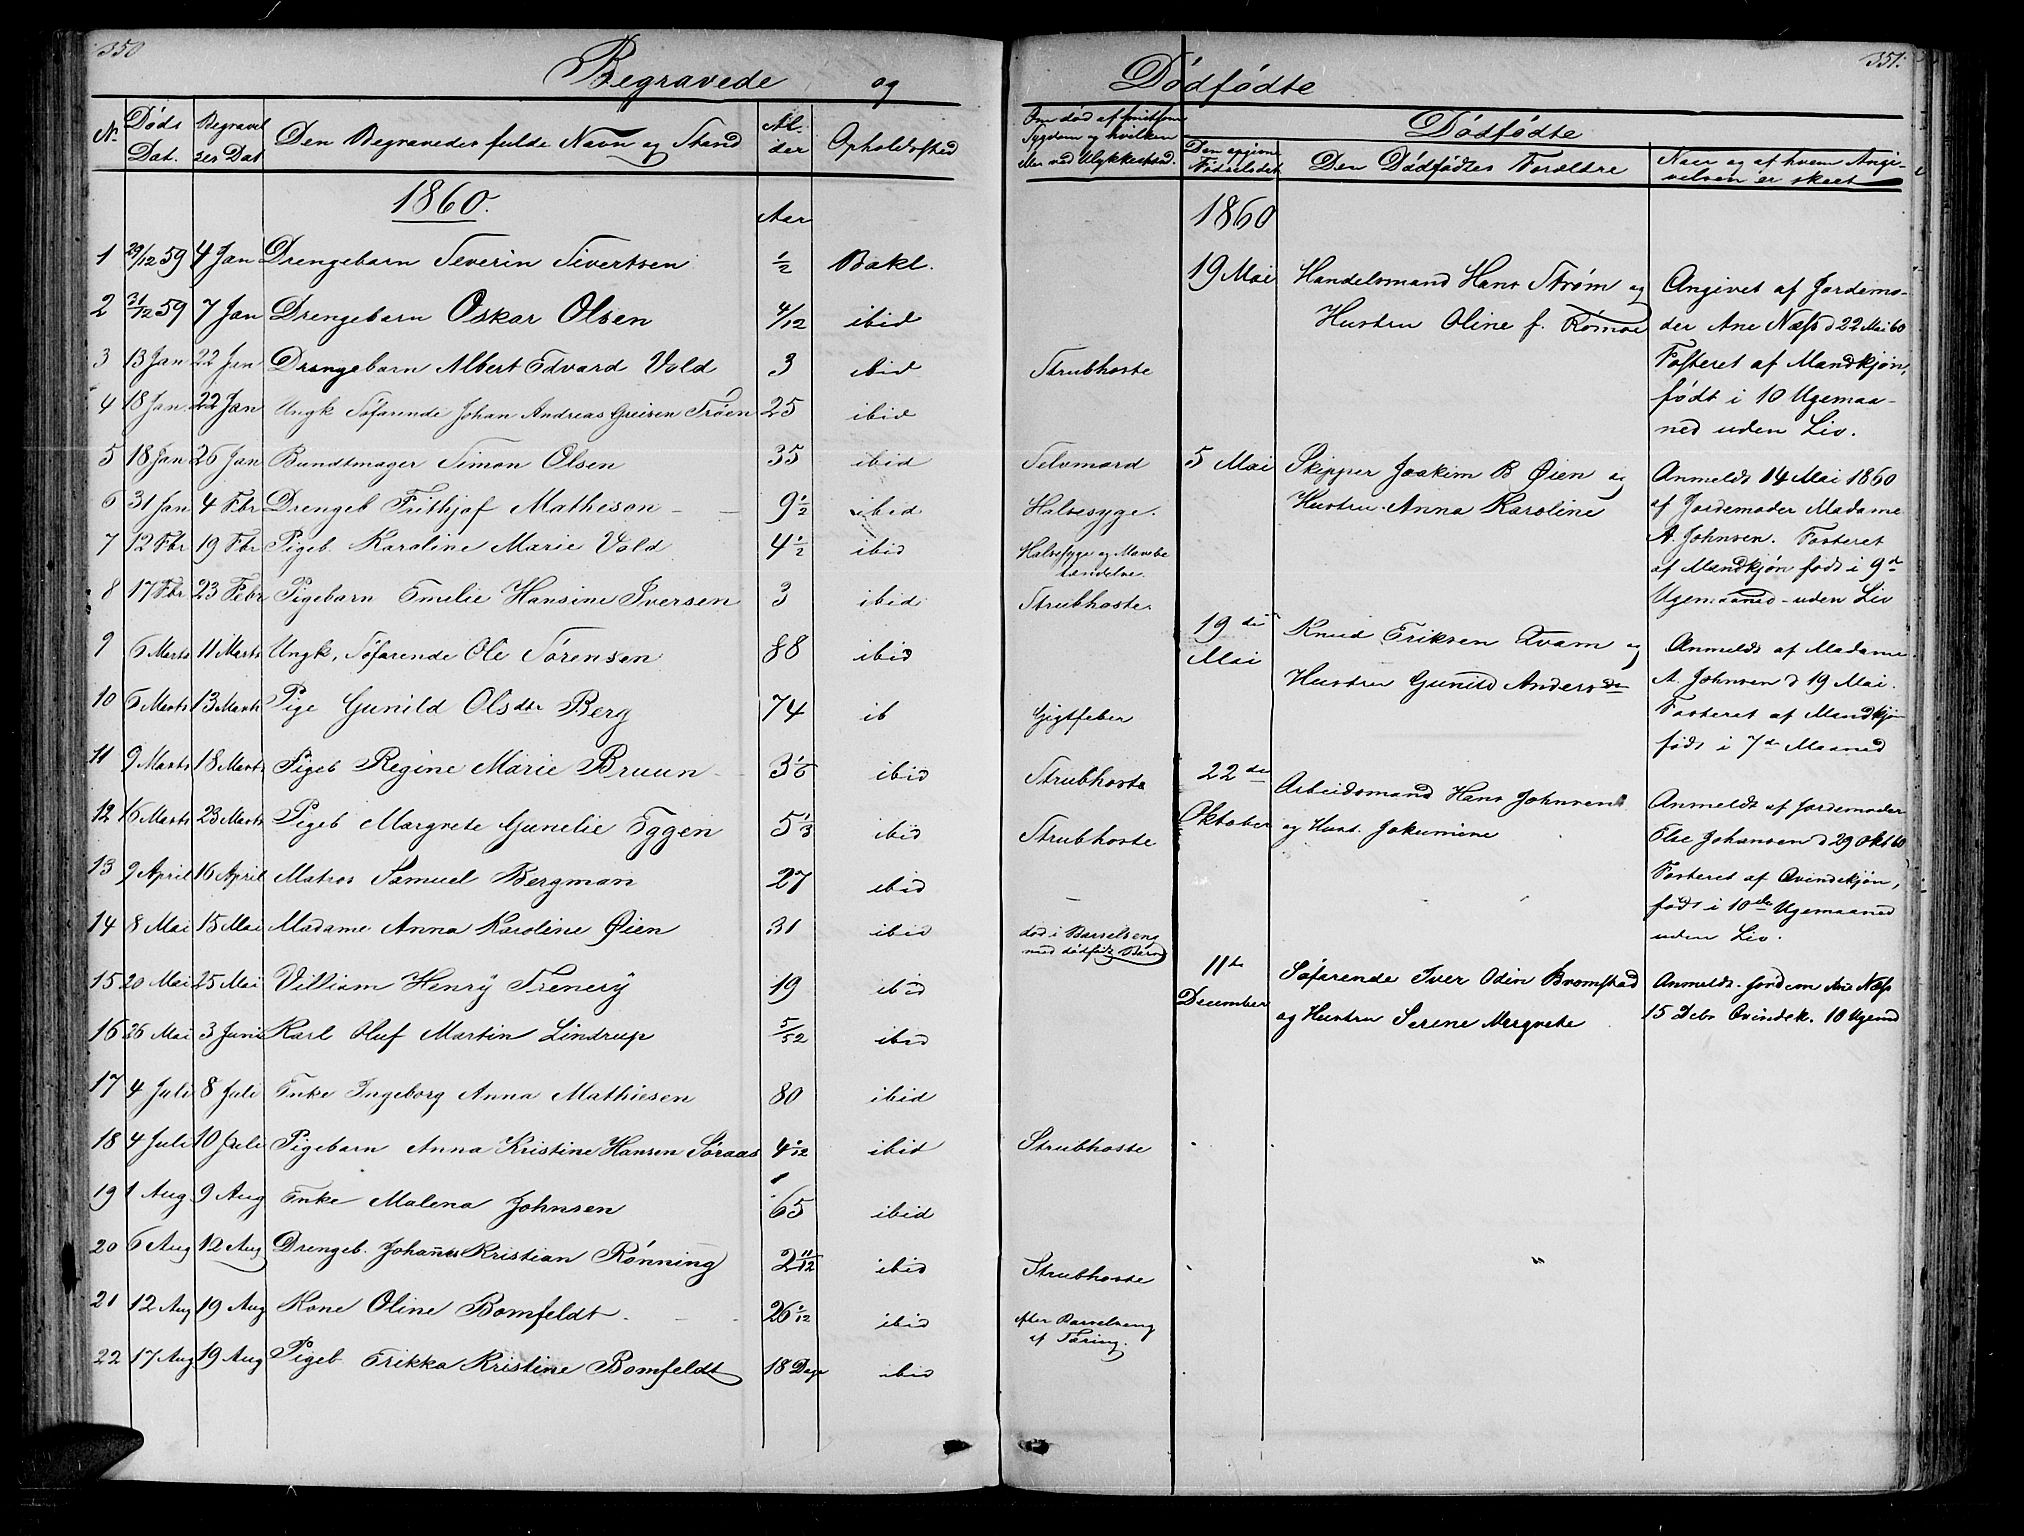 350
351.
Begravede og Dödfödte
No Døds Dat. Begravelses Dat Den Begravedes fulde Navn og Stand Alder Opholdssted
Om død af smitsom Sygdom og hvilken eller ved Ulykkestilfæ.
Dödfödte
Den opgivne Fødselsdat Den Dödfödtes Forældre Naar og af hvem Angivelsen er skeet
1860.
Aar
1 29/12 59 4 Jan Drengebarn Severin Sivertsen ½ Bakl.
2 31/12 59 7 Jan Drengebarn Oskar Olsen 4/12 ibid
3 13 Jan 22 Jan Drengebarn Albert Edvard Vold 3 ibid Strubhoste
4 18 Jan 22 Jan Ungk Söfarende Johan Andreas Troen 25 ibid
5 18 Jan 26 Jan Bundtmager Simon Olsen 35 ibid Selvmord
6 31 Jan 4 Fbr Drengeb Frithjof Matheson 9½ ibid Halvesyge.
7 12 Fbr 19 Fbr Pigeb. Karoline Marie Vold 4½ ibid Halvesyge og
8 17 Fbr 23 Febr Pigebarn Emelie Hansine Iversen 3 ibid Strubhoste
9 6 Marts 11 Marts Ungk, Söfarende Ole Sörensen 88 ibid
10 6 Marts 13 Marts Pige Gunild Olsdtr Berg 74 ib Gigtfeber
11 9 Marts 18 Marts Pigeb Regine Marie Bruun 3 1/6 ibid Strubhoste
12 16 Marts 23 Marts Pigeb Margrete Gunelie Eggen 5 1/3 ibid Strubhoste
13 9 April 16 April Matros Samuel Bergman 27 ibid
14 8 Mai 15 Mai Madame Anna Karoline Øien 31 ibid död i Barselseng
med dødfødt Barn
15 20 Mai 25 Mai Villiam Henrÿ Trenerÿ 19 ibid
16 26 Mai 3 Juni Karl Oluf Martin Lindrup 5/52 ibid
17 4 Juli 8 Juli Enke Ingeborg Anna Mathiesen 80 ibid
18 4 Juli 10 Juli Pigebarn Anna Kristine Hansen Söraas 4 1/12 ibid Strubhoste
19 1 Aug 9 Aug Enke Malena Johnsen 65 ibid
20 6 Aug 12 Aug Drengeb. Johannes Kristian Rönning 2 11/12 ibid Strubhoste
21 12 Aug 19 Aug Kone Oline Bomfeldt 26 1/12 ibid efter Barselseng
af Tæring.
22 17 Aug 19 Aug Pigeb Frikka Kristine Bomfeldt 18 Dage ibid
1860
19 Mai Handelsmand Hans Strøm og
Hustru Oline f. Römoe
Angivet af Jordemo-
der Ane Næss d 22 Mai 60
Fosteret af Mandkjøn,
født i 10 Ugemaa-
ned uden Liv.
5 Mai Skipper Joakim B Øien og
Hustru Anna Karoline
Anmeldt 14 Mai 1860
af Jordemoder Madame
A. Johnsen. Fosteret
af Mandkjøn født i 9de
Ugemaaned - uden Liv
19de Mai Knud Eriksen Qvam og
Hustru Gunild Andersdr
Anmeldt af Madame
A. Johnsen d 19 Mai.
Fosteret af Mandkjø-
født i 7de Maaned
22de Oktober Arbeidsmand Hans Johnsen
og Hust. Jokumine
Anmeldt af Jordemoder
Else Johansen d 29 Okt 60
Fosteret af Qvindekjøn,
født i 10de Ugemaaned
uden Liv.
11te December Söfarende Iver Odin Bromstad
og Hustru Serene Margrete
Anmeldt Jordem Ane Næss
15 Debr Qvindek. 10 Ugemd